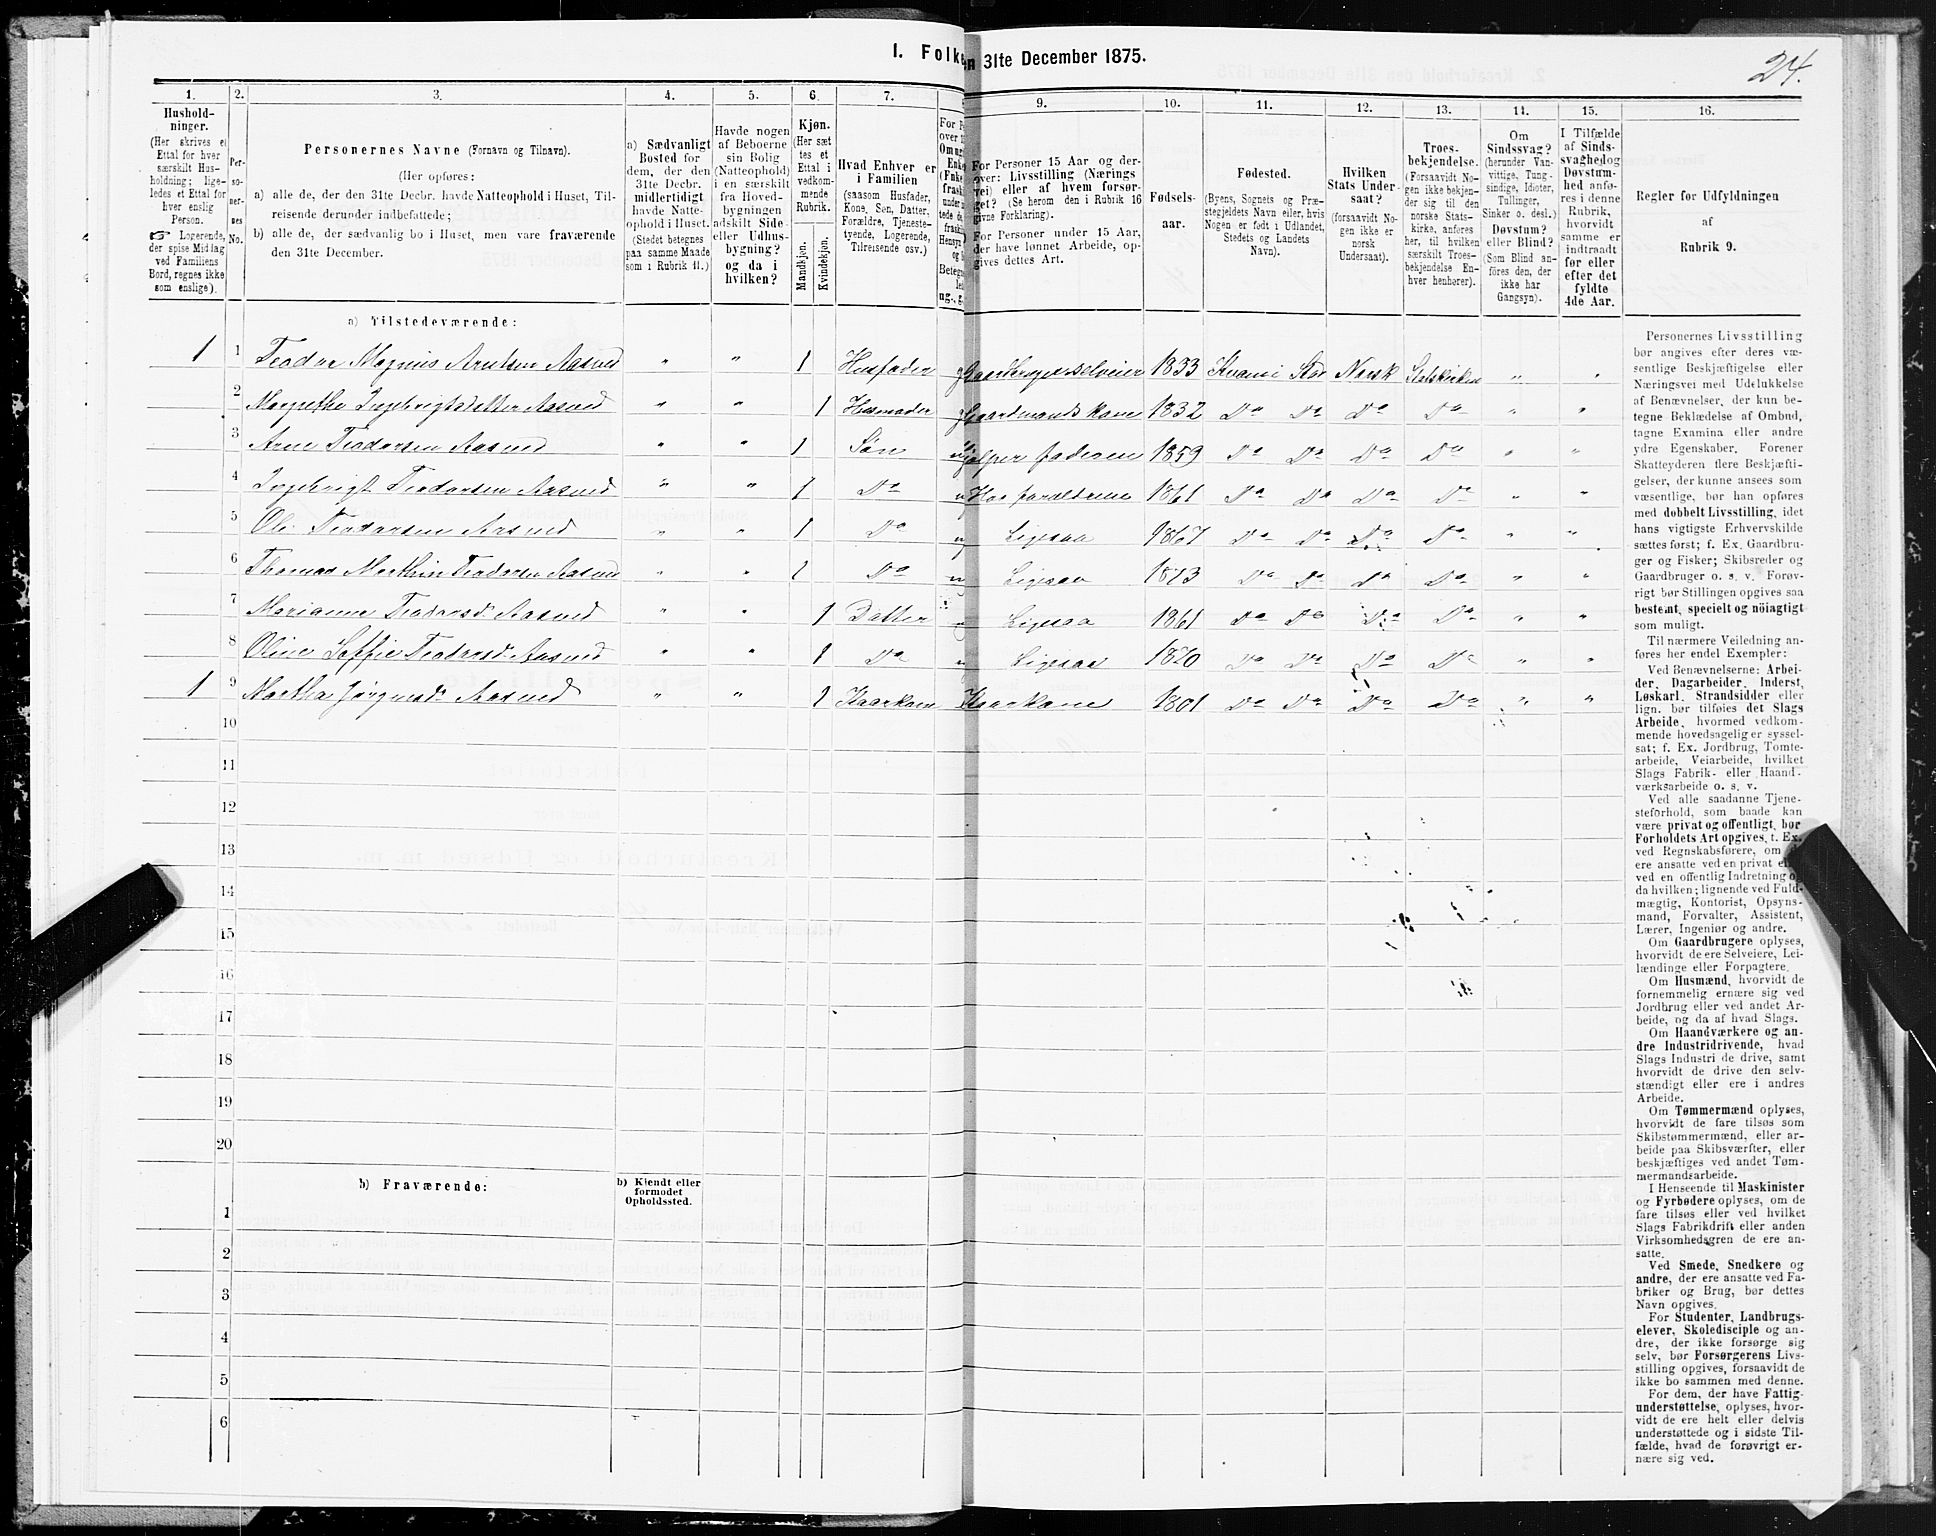 I. Folke
n 31te December 1875.
24.
1. 2. 3. 4. 5. 6. 7. 9. 10. 11. 12. 13. 14. 15. 16.
Hushold-
ninger.
(Her skrives et
Ettal for hver
særskilt Hus-
holdning; lige-
ledes et Ettal for
hver enslig
Person.
☞ Logerende,
der spise Middag
ved Familiens
Bord, regnes ikke
som enslige).
Per-
so-
ner-
nes
No.
Personernes Navne (Fornavn og Tilnavn).
(Her opføres:
a) alle de, der den 31te Decbr. havde Natteophold i Huset, Til-
reisende derunder indbefattede;
b) alle de, der sædvanlig bo i Huset, men vare fraværende
den 31te December.
a) Sædvanligt
Bosted for
dem, der den
31te Decbr.
midlertidigt
havde Natte-
ophold i Huset.
(Stedet betegnes
paa samme Maade
som i Rubrik 11.)
Havde nogen
af Beboerne
sin Bolig
(Natteophold)
i en særskilt
fra Hoved-
bygningen
adskilt Side-
eller Udhus-
bygning?
og da i
hvilken?
Kjøn.
(Her sæt-
tes et
Ettal i
vedkom-
mende
Rubrik.
Mandkjøn.
Kvindekjøn.
Hvad Enhver er
i Familien
(saasom Husfader,
Kone, Søn, Datter,
Forældre, Tjeneste-
tyende, Logerende,
Tilreisende osv.)
For Personer 15 Aar og der-
over: Livsstilling (Nærings
vei) eller af hvem forsør-
get? (Se herom den i Rubrik 16
givne Forklaring).
For Personer under 15 Aar,
der have lønnet Arbeide, op-
gives dettes Art.
Fødsels-
aar.
Fødested.
(Byens, Sognets og Præ-
stegjeldets Navn eller, hvis
Nogen er født i Udlandet,
Stedets og Landets
Navn).
Hvilken
Stats Under-
saat?
(forsaavidt No-
gen ikke er
norsk
Undersaat).
Troes-
bekjendelse.
(Forsaavidt No-
gen ikke bekjen-
der sig til den
norske Stats-
kirke, anføres
her, til hvilken
særskilt Troes-
bekjendelse En-
hver henhører).
Om
Sindssvag?
(herunder Van-
vittige, Tung-
sindige, Idioter,
Tullinger,
Sinker o. desl.)
Døvstum?
eller Blind?
(Som Blind an-
føres den, der
ikke har
Gangsyn).
I Tilfælde
af Sinds-
svaghed og
Døvstum-
hed anfø-
res i denne
Rubrik,
hvorvidt
samme er
indtraadt
før eller
efter det
fyldte
4de Aar.
Regler for Udfyldningen
af
Rubrik 9.
a) Tilstedeværende:
1 1 Teodor Magnus Arntsen Aasved " " 1 Husfader g Gaardbruger selveier 1833 Kvami Stod Norsk Statskirken " "
2 Margrethe Ingebrigtsdatter Aasved " " 1 Husmoder g Gaardmands kone 1832 Do Do Do Do " "
3 Arne Teodorsen Aasved " " 1 Søn Hjælper faderen 1859 Do Do Do Do " "
4 Ingebrigt Teodorsen Aasved " " 1 Do Hos forældrene 1861 Do Do Do Do " "
5 Ole Teodorsen Aasved " " 1 Do Ligesaa 1867 Do Do Do Do " "
6 Thomas Marthin Teodorsen Aasved " " 1 Do Ligesaa 1873 Do Do Do Do " "
7 Marianna Teodorsd. Aasved " " 1 Datter Ligesaa 1861 Do Do Do Do " "
8 Oline Soffie Teodorsd. Aasved " " 1 Do Ligesaa 1870 Do Do Do Do " "
1 9 Martha Jørgensd. Aasved " " 1 Kaarkone Kaarkone 1801 Do Do Do Do " "
10
11
12
13
14
15
16
17
18
19
20
b) Fraværende:
b) Kjendt eller
formodet
Opholdssted.
1
2
3
4
5
6
Personernes Livsstilling
bør angives efter deres væ-
sentlige Beskjæftigelse eller
Næringsvei med Udelukkelse
af Benævnelser, der kun be-
tegne Beklædelse af Ombud,
tagne Examina eller andre
ydre Egenskaber. Forener
Skatteyderen flere Beskjæfti-
gelser, der kunne ansees som
væsentlige, bør han opføres
med dobbelt Livsstilling, idet
hans vigtigste Erhvervskilde
sættes først; f. Ex. Gaardbru-
ger og Fisker; Skibsreder og
Gaardbruger o. s. v. Forøv-
rigt bør Stillingen opgives saa
bestemt, specielt og nöiagtigt
som muligt.
Til nærmere Veiledning an-
føres her endel Exempler:
Ved Benævnelserne: Arbei-
der, Dagarbeider, Inderst,
Løskarl, Strandsidder eller
lign. bør tilføies det Slags
Arbeide, hvormed vedkom-
mende hovedsagelig er syssel-
sat; f. Ex. Jordbrug, Tomte-
arbeide, Veiarbeide, hvilket
Slags Fabrik- eller Haand-
værksarbeide o. s. v.
Ved alle saadanne Tjene-
steforhold, som baade kan
være privat og offentligt, bør
Forholdets Art opgives, t. Ex.
ved Regnskabsførere, om de
ere ansatte ved en privat eller
ved en offentlig Indretning og
da hvilken; lignende ved Fuld-
mægtig, Kontorist, Opsyns-
mand, Forvalter, Assistent,
Lærer, Ingeniør og andre.
Om Gaardbrugere oplyses,
hvorvidt de ere Selveiere, Lei-
lændinge eller Forpagtere.
Om Husmænd, hvorvidt de
fornemmelig ernære sig ved
Jordbrug eller ved andet Ar-
beide, og da af hvad Slags.
Om Haandværkere og an-
dre Industridrivende, hvad
Slags Industri de drive, samt
hvorvidt de drive den selv-
stændigt eller ere i andres
Arbeide.
Om Tømmermænd oplyses,
hvorvidt de fare tilsøs som
Skibstømmermænd, eller ar-
beide paa Skibsværfter, eller
beskjæftiges ved andet Tøm-
mermandsarbeide.
I Henseende til Maskinister
og Fyrbødere oplyses, om de
fare tilsøs eller ved hvilket
Slags Fabrikdrift eller anden
Virksomhedsgren de ere an-
satte.
Ved Smede, Snedkere og
andre, der ere ansatte ved Fa-
briker og Brug, bør dettes
Navn opgives.
For Studenter, Landbrugs-
elever, Skoledisciple og an-
dre, der ikke forsørge sig
selv, bør Forsørgerens Livs-
stilling opgives, forsaavidt de
ikke bo sammen med denne.
For dem, der have Fattig-
understøttelse, oplyses, hvor-
vidt de ere helt eller delvis
understøttede og i sidste Til-
fælde, hvad de forøvrigt er-
nære sig ved.